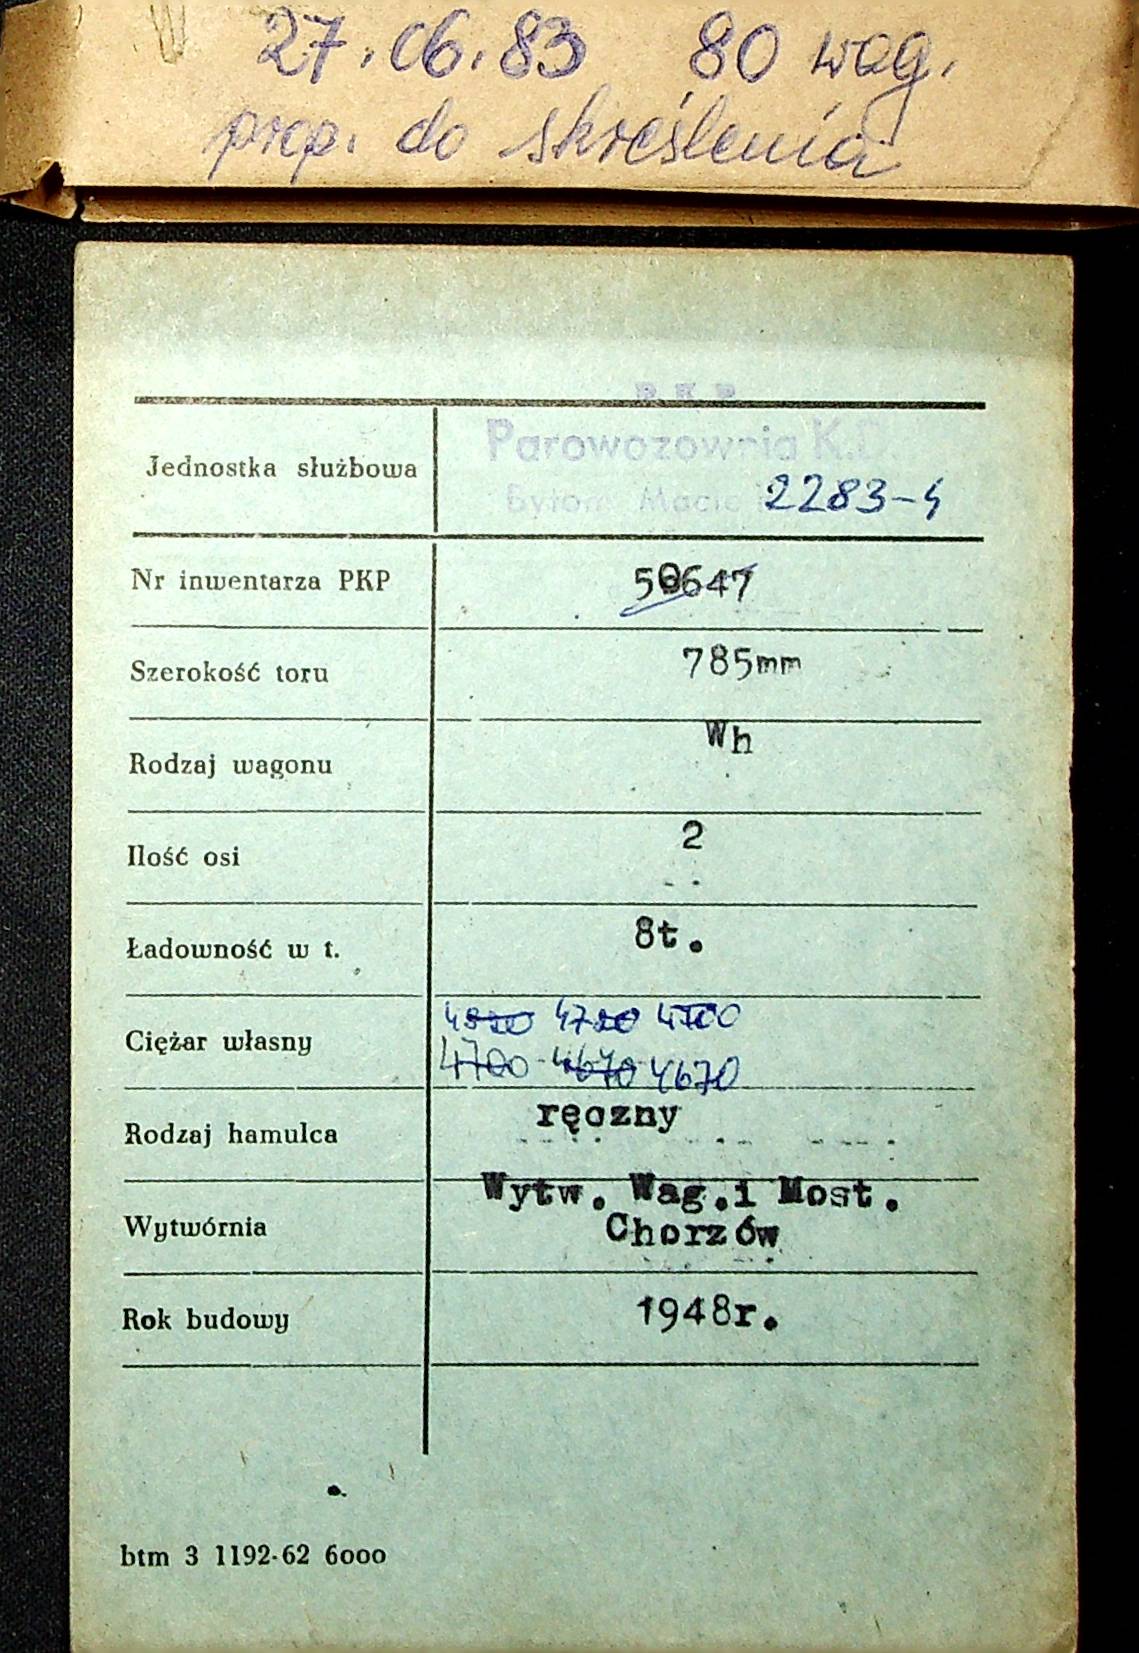 27.06.83 80 wag.
prop. do skreślenia
P.K.P.
Jednostka służbowa Parowozownia K.D.
Bytom 2283-4
Nr inwentarza PKP 50647
Szerokość toru 785mm
Rodzaj wagonu Wh
Ilość osi 2
Ładowność w t. 8t.
4720 4700
Ciężar własny
4700 4640 4670
Rodzaj hamulca ręczny
Wytw. Wag.i Most.
Wytwórnia Chorzów
Rok budowy 1948r.
btm 3 1192-62 6000